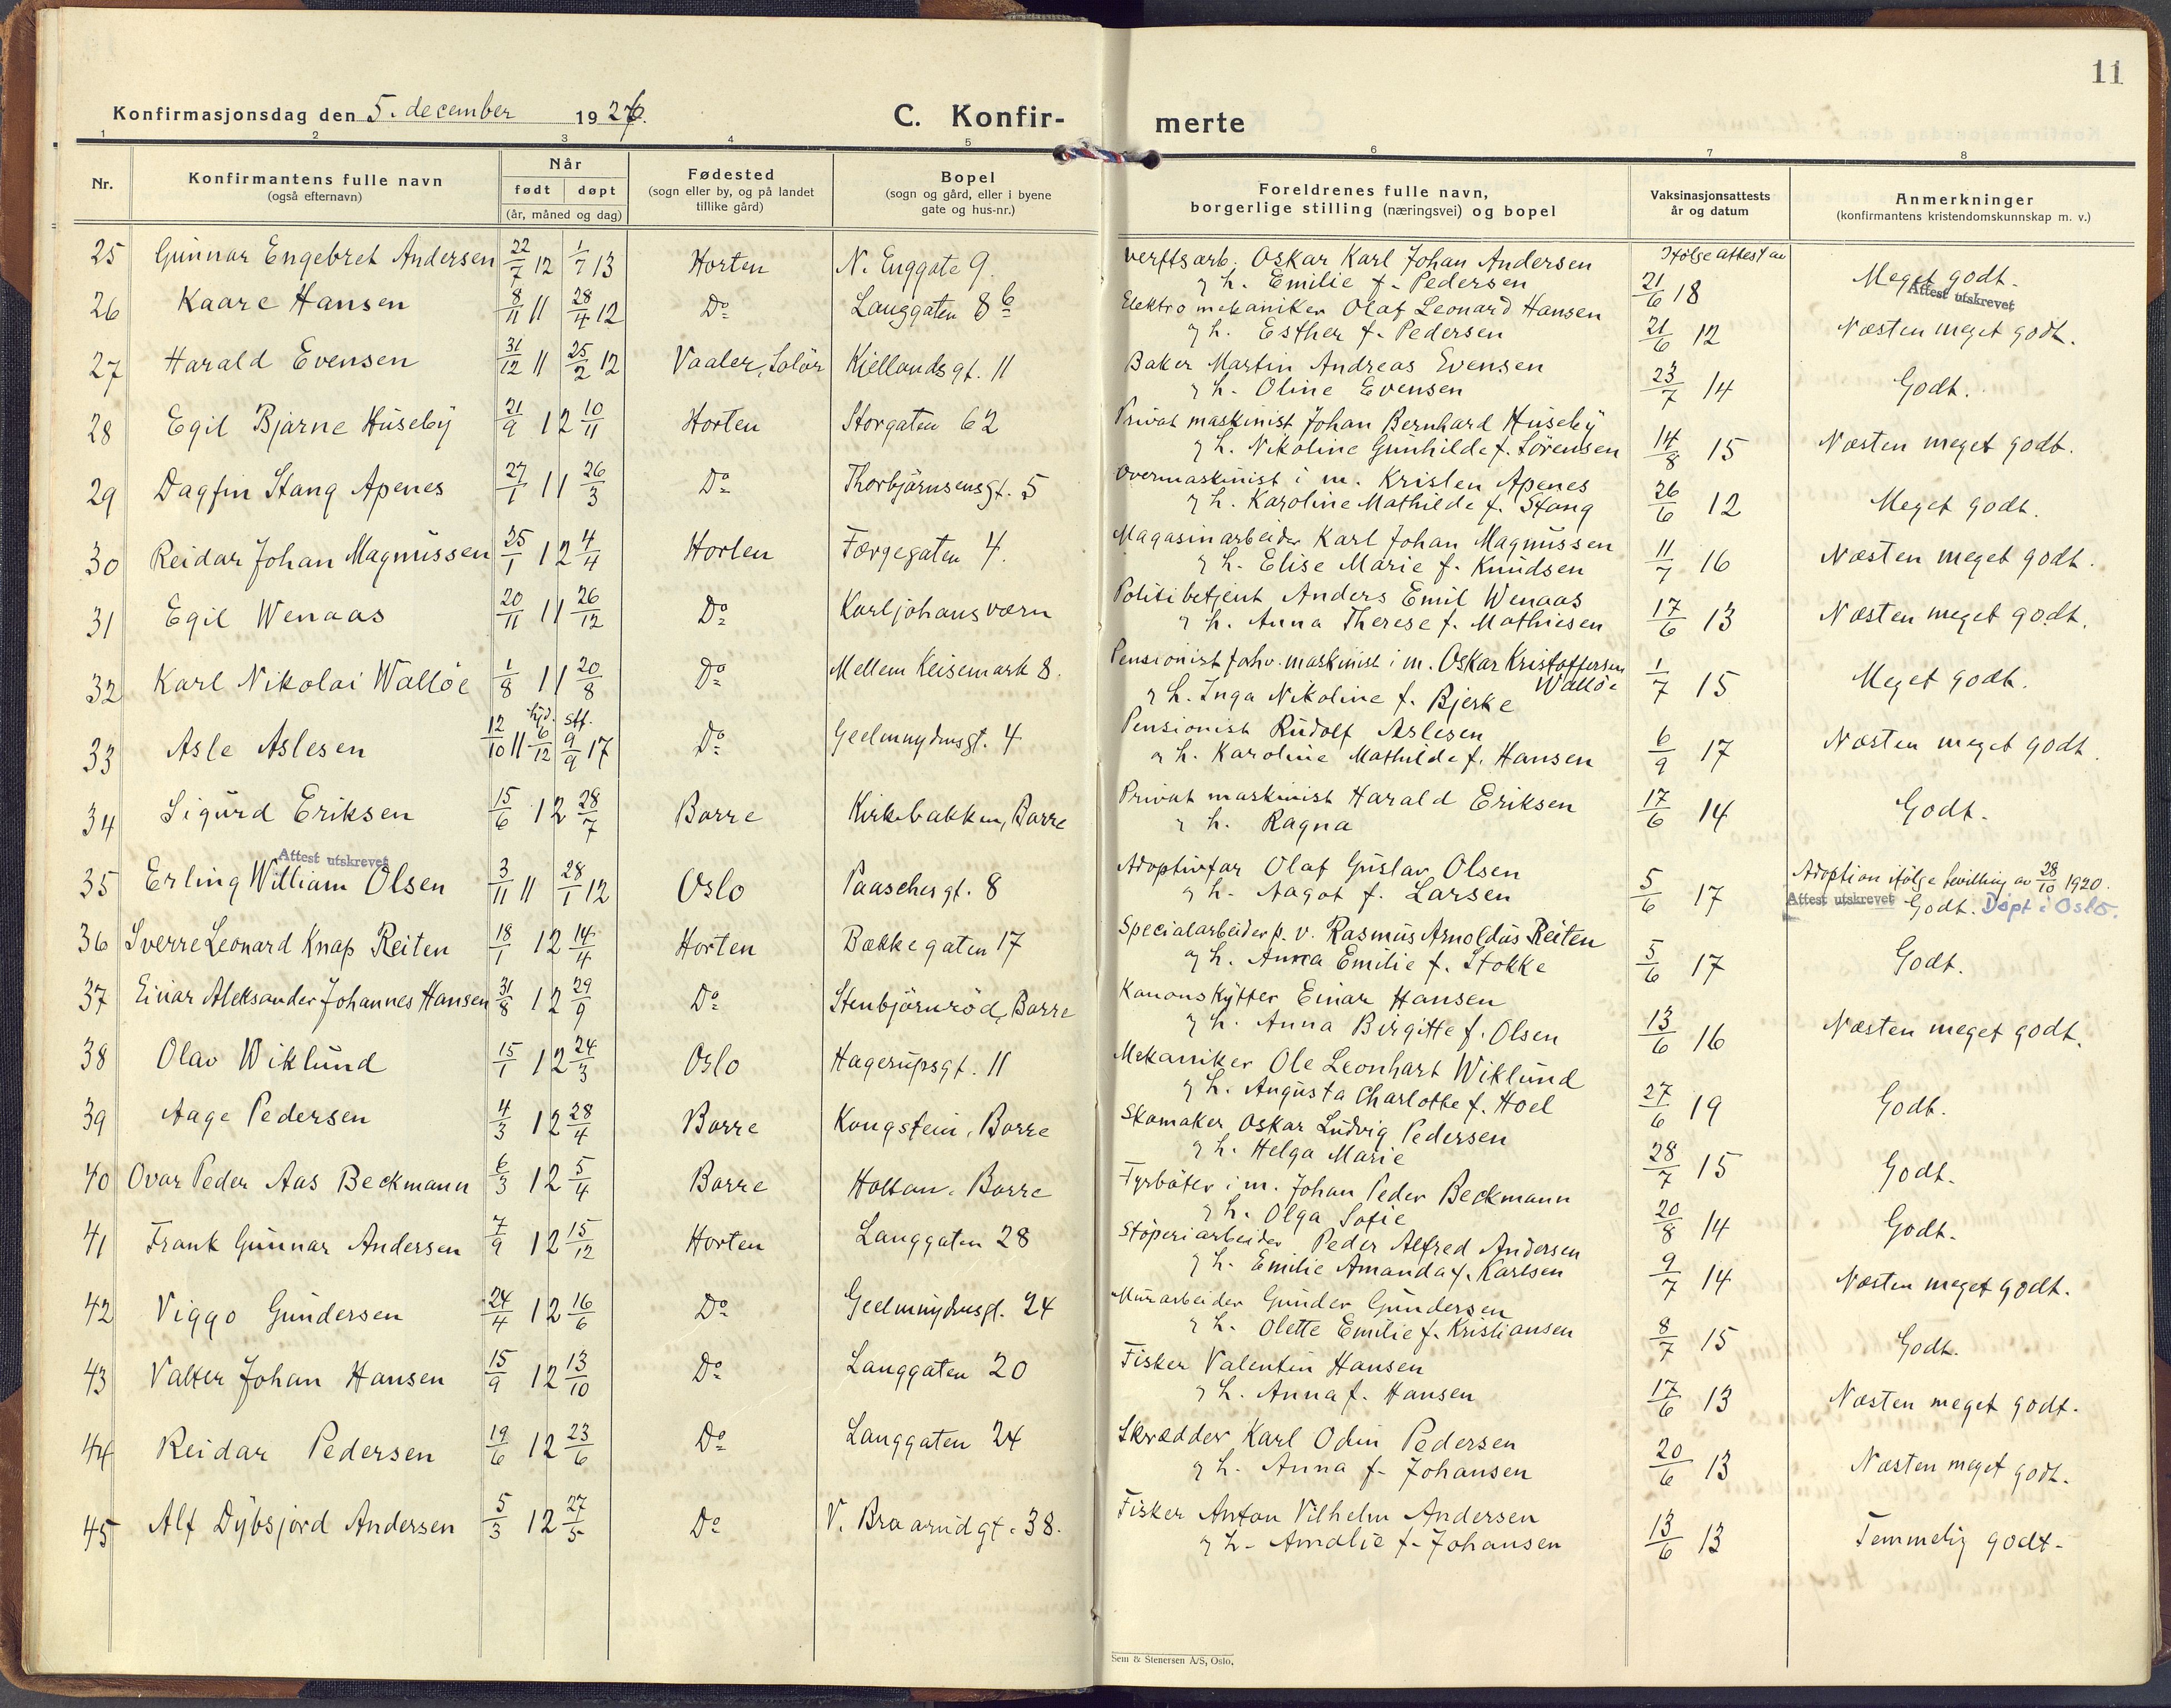 11
Konfirmasjonsdag den 5. december 1926.
C. Konfir-
merte
1 2 3 4 5 6 7 8
Nr.
Konfirmantens fulle navn
(også efternavn)
Når
født døpt
(år, måned og dag)
Fødested
(sogn eller by, og på landet
tillike gård)
Bopel
(sogn og gård, eller i byene
gate og hus-nr.)
Foreldrenes fulle navn,
borgerlige stilling (næringsvei) og bopel
Vaksinasjonsattests
år og datum
Anmerkninger
(konfirmantens kristendomskunnskap m. v.)
Ifølge attest av
25 Gunnar Engebret Andersen 22/7 12 1/7 13 Horten N. Enggate 9.
Verftsarb. Oskar Karl Johan Andersen
og h. Emilie f. Pedersen 21/6 18 Meget godt.
Attest utskrevet
26 Kaare Hansen 8/11 11 28/4 12 Do Langgaten 8b
Elektromekaniker Olaf Leonard Hansen
og h. Esther f. Pedersen 21/6 12 Næsten meget godt.
27 Harald Evensen 31/12 11 25/2 12 Vaaler, Solør Kiellandsgt. 11
Baker Martin Andreas Evensen
og h. Oline Evensen 23/7 14 Godt.
28 Egil Bjarne Huseby 21/9 12 10/11 Horten Storgaten 62
Privat maskinist Johan Bernhard Huseby
og h. Nikoline Gunhilde f. Sørensen 14/8 15 Næsten meget godt.
29 Dagfin Stang Apenes 27/1 11 26/3 Do Thorbjørnsensgt. 5
Overmaskinist i m. Kristen Apenes
og h. Karoline Mathilde f. Stang 26/6 12 Meget godt.
30 Reidar Johan Magnussen 25/1 12 4/4 Horten Færgegaten 4.
Magasinarbeider Karl Johan Magnussen
og h. Elise Marie f. Knudsen 11/7 16 Næsten meget godt.
31 Egil Wenaas 20/11 11 26/12 Do Karljohansværn
Politibetjent Anders Emil Wenaas
og h. Anna Therese f. Mathiesen 17/6 13 Næsten meget godt.
32 Karl Nikolai Walløe 1/8 11 20/8 Do Mellem Keisemark 8.
Pensionist forhv. maskinist i m. Oskar Kristoffersen
Walløe
og h. Inga Nikoline f. Bjerke 1/7 15 Meget godt.
33 Asle Aslesen 12/10 11 hjd. 6/12 stf. 9/9 17 Do Geelmuydensgt. 4
Pensionist Rudolf Aslesen
og h. Karoline Mathilde f. Hansen 6/9 17 Næsten meget godt.
34 Sigurd Eriksen 15/6 12 28/7 Borre Kirkebakken, Borre
Privat maskinist Harald Eriksen
og h. Ragna 17/6 14 Godt.
Attest utskrevet
35 Erling William Olsen 3/11 11 28/1 12 Oslo Paaschesgt. 8
Adoptivfar Olaf Gustav Olsen
og h. Aagot f. Larsen 5/6 17 Adoption ifølge bevilling av 28/10 1920.
Attest utskrevet Godt. Døpt i Oslo.
36 Sverre Leonard Knap Reiten 18/1 12 14/4 Horten Bækkegaten 17
Specialarbeider p. v. Rasmus Arnoldus Reiten
og h. Anna Emilie f. Stokke 5/6 17 Godt.
37 Einar Aleksander Johannes Hansen 31/8 12 29/9 Do Stenbjørnrød, Borre
Kanonskytter Einar Hansen
og h. Anna Birgitte f. Olsen 13/6 16 Næsten meget godt.
38 Olav Wiklund 15/1 12 24/3 Oslo Hagerupsgt. 11
Mekaniker Ole Leonhart Wiklund
og h. Augusta Charlotte f. Hoel 27/6 19 Godt.
39 Aage Pedersen 4/3 12 28/4 Borre Kongstein, Borre
Skomaker Oskar Ludvig Pedersen
og h. Helga Marie 28/7 15 Godt.
40 Ovar Peder Aas Beckmann 6/3 12 5/4 Borre Holtan, Borre
Fyrbøter i m. Johan Peder Beckmann
og h. Olga Sofie 20/8 14 Godt.
41 Frank Gunnar Andersen 7/9 12 15/12 Horten Langgaten 28
Støperiarbeider Peder Alfred Andersen
og h. Emilie Amanda f. Karlsen 9/7 14 Næsten meget godt.
42 Viggo Gundersen 24/4 12 16/6 Do Geelmuydensgt. 24
Murarbeider Gunder Gundersen
og h. Olette Emilie f. Kristiansen 8/7 15 Godt.
43 Valter Johan Hansen 15/9 12 13/10 Do Langgaten 20
Fisker Valentin Hansen
og h. Anna f. Hansen 17/6 13 Næsten meget godt.
44 Reidar Pedersen 19/6 12 23/6 Do Langgaten 24
Skrædder Karl Odin Pedersen
og h. Anna f. Johansen 20/6 13 Næsten meget godt.
45 Alf Dybsjord Andersen 5/3 12 27/5 Do V. Braarudgt. 38.
Fisker Anton Vilhelm Andersen
og h. Amalie f. Johansen 13/6 13 Temmelig godt.
Sem & Stenersen A/S, Oslo.